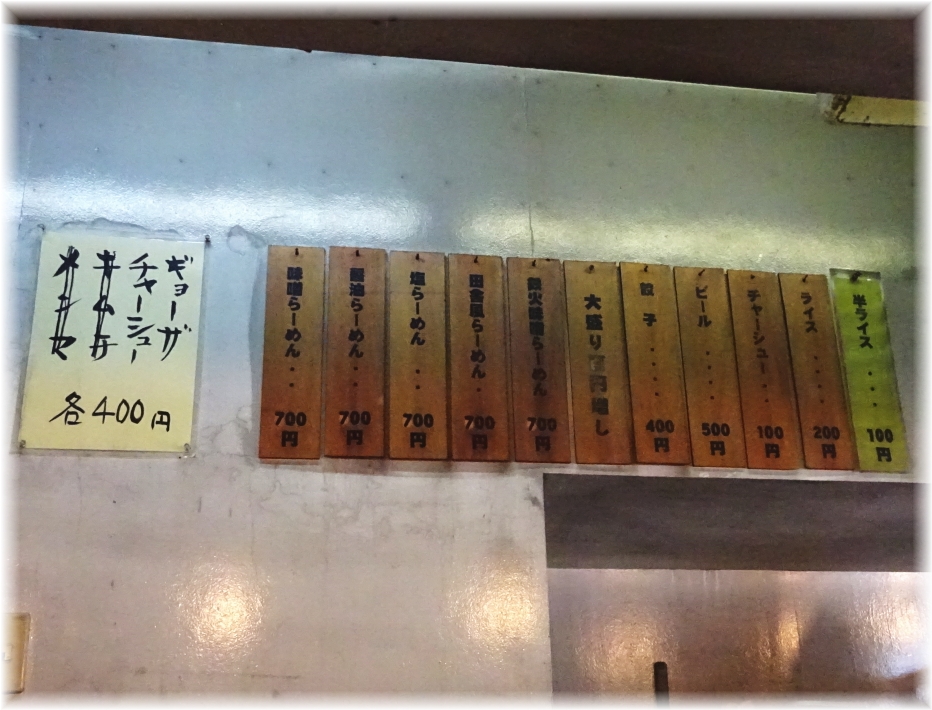 ギョーザ
チャーシュー
各400円
味噌らーめん・・700円
醤油らーめん・・700円
塩らーめん・・・700円
田舎風らーめん・700円
火味噌らーめん700円
大盛り百円増し
餃子・・・・400円
ビール・・・500円
チャーシュー・・100円
ライス・・・・200円
半ライス・・・100円